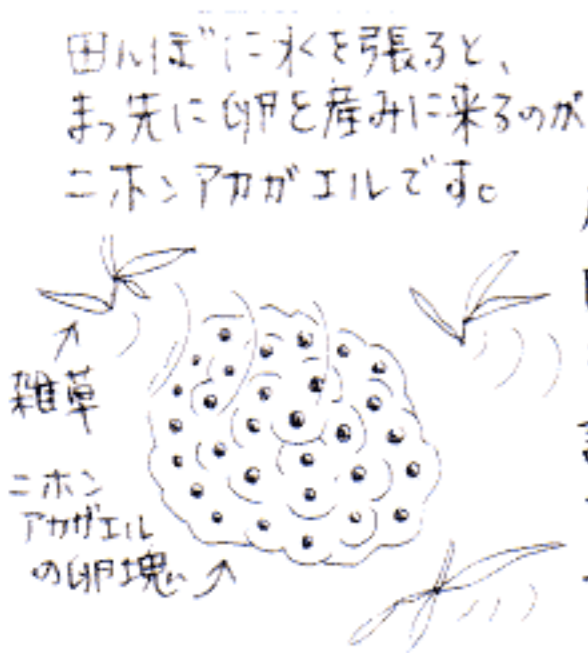 田んぼに水を張ると、
まっ先に卵を産みに来るのが
ニホンアカガエルです。
雑草
ニホン
アカガエル
の卵塊